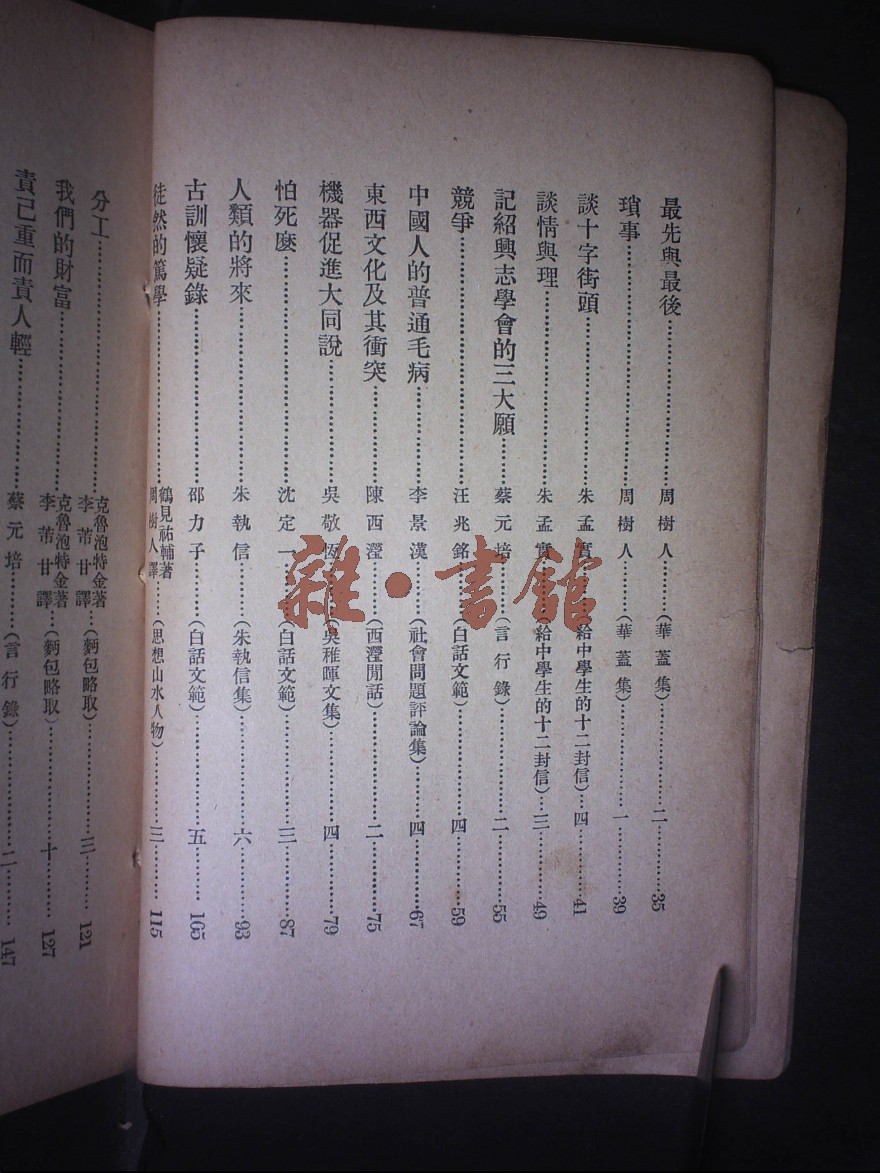 最先與最後……周樹人…(華蓋集)……二……35
瑣事……周樹人…(華蓋集)……一……39
談十字街頭……朱孟實…(給中學生的十二封信)…四……41
談情與理……朱孟實…(給中學生的十二封信)…三……49
記紹興志學會的三大願……蔡元培…(言行錄)……二……55
競爭……汪兆銘…(白話文範)……四……59
中國人的普通毛病……李景漢…(社會問題評論集)……四……67
東西文化及其衝突……陳西瀅…(西瀅閒話)……二……75
機器促進大同說……吳敬恆…(吳稚暉文集)……四……79
怕死麼……沈定一…(白話文範)……三……87
人類的將來……朱執信…(朱執信集)……六……93
古訓懷疑錄……邵力子…(白話文範)……五……105
徒然的篤學……鶴見祐輔著 周樹人譯…(思想山水人物)……三……115
分工……克魯泡特金著 李芾甘譯…(麪包略取)……三……121
我們的財富……克魯泡特金著 李芾甘譯…(麪包略取)……十……127
責己重而責人輕……蔡元培…(言行錄)……二……147
雜·書館